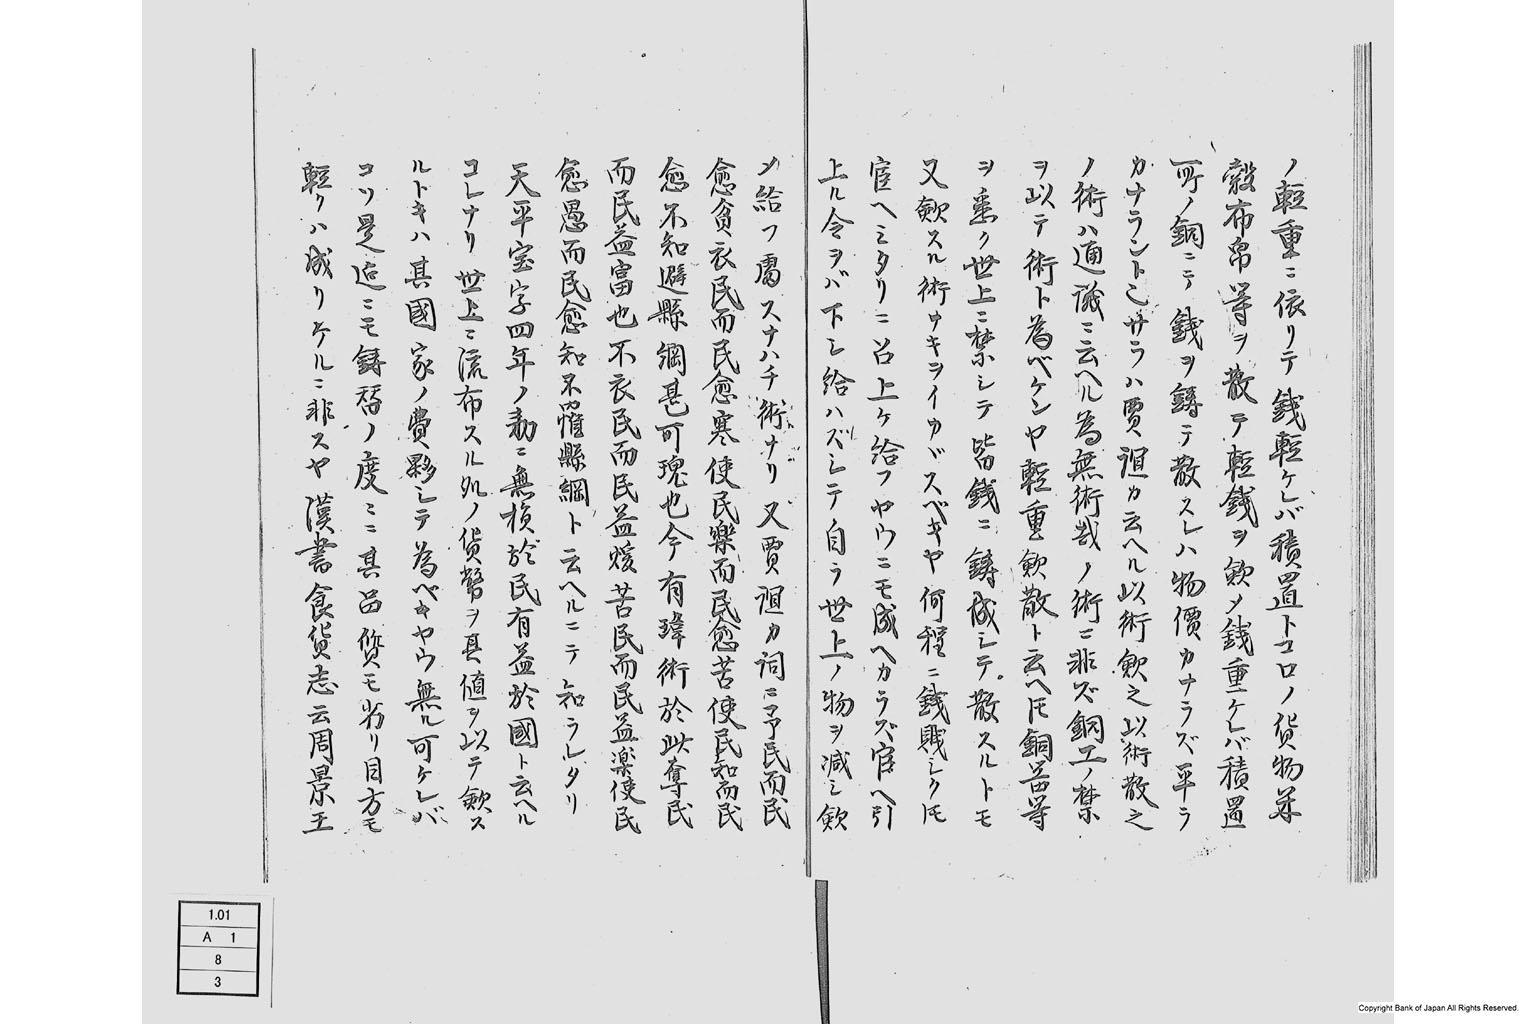 ノ輕重ニ依リテ錢輕ケレバ積置トコロノ貨物米
穀布帛等ヲ散テ輕錢ヲ斂メ錢重ケレバ積置
所ノ銅ニテ錢ヲ鑄テ散スレハ物價カナラズ平ラ
カナラントヒサラハ賈誼カ云ヘル以術斂之以術散之
ノ術ハ通議ニ云ヘル為無術哉ノ術ニ非ズ銅工ノ禁
ヲ以テ術ト為ベケンヤ輕重斂散ト云ヘ𪜈銅器等
ヲ悉ク世上ニ禁シテ皆錢ニ鑄成シテ散スルトモ
又斂スル術ナキヲイカヾスベキヤ何程ニ錢賤シク𪜈
官ヘミタリニ召上ケ給フヤウニモ成ヘカラズ官ヘ引
上ル令ヲバ下シ給ハズシテ自ラ世上ノ物ヲ減シ斂
メ給フ處スナハチ術ナリ又賈誼カ詞ニ予民而民
愈貧衣民而民愈寒使民樂而民愈苦使民知而民
愈不知避縣網甚可瑰也今有瑋術於此奪民
而民益富也不衣民而民益煖苦民而民益樂使民
愈愚而民愈知不罹縣網ト云ヘルニテ知ラレタリ
天平宝字四年ノ勅ニ無損於民有益於國ト云ヘル
コレナリ世上ニ流布スル処ノ貨幣ヲ其値ヲ以テ斂ス
ルトキハ其國家ノ費夥シテ為ベキヤウ無ル可ケレバ
コソ是迄ニモ鑄替ノ度ミニ其品質モ劣リ目方モ
輕クハ成リケルニ非スヤ漢書食貨志云周景王
1.01
A 1
8
3
Copyright Bank of Japan All Rights Reserved.